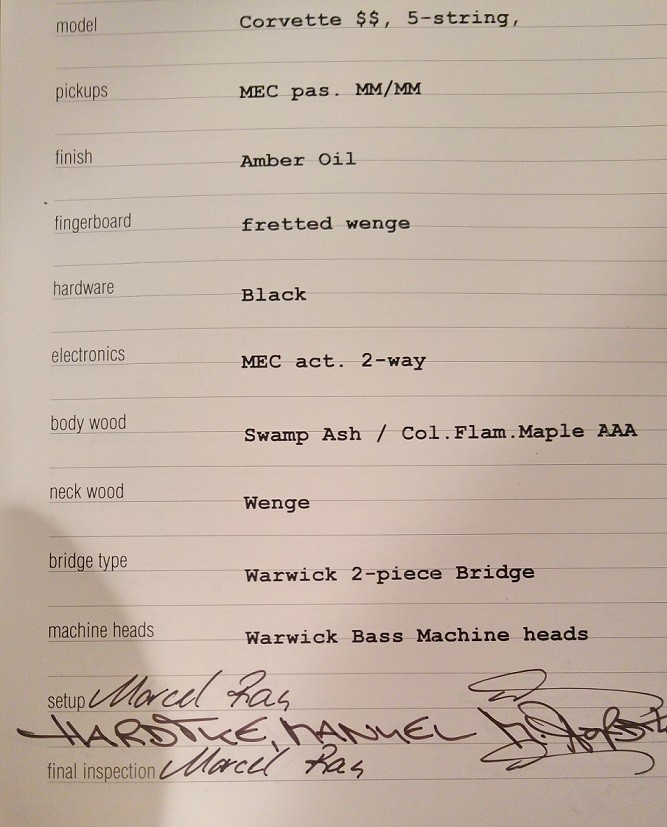 model Corvette $$, 5-string,
pickups MEC pas. MM/MM
finish Amber Oil
fingerboard fretted wenge
hardware Black
electronics MEC act. 2-way
body wood Swamp Ash / Col.Flam.Maple AAA
neck wood Wenge
bridge type Warwick 2-piece Bridge
machine heads Warwick Bass Machine heads
setup Marcel
HARDTKE, MANUEL
final inspection Marcel